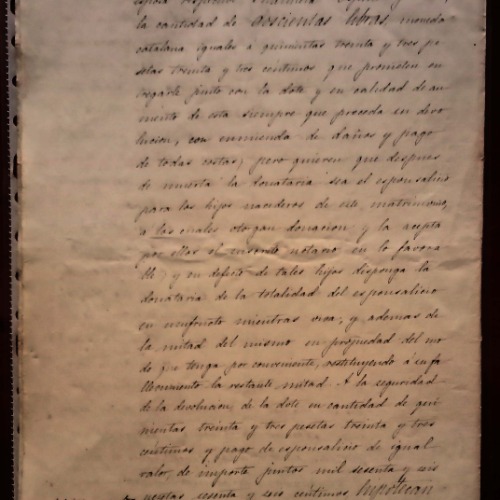 la cantidad de doscientas libras moneda
catalana iguales a quinientas treinta y tres pe
setas treinta y tres centimos que prometen en
tregarle junto con la dote y en calidad de au
mento de esta siempre que proceda su devo
lucion, con enmienda de daños y pago
de todas costas; pero quieren que despues
de muerta la donataria sea el esponsalicio
para los hijos nacederos de este matrimonio,
a los cuales otorgan donacion y la acepta
por ellos el infrascrito notario en lo favora
ble; y en defecto de tales hijos disponga la
donataria de la totalidad del esponsalicio
en usufructo mientras viva, y ademas de
la mitad del mismo en propiedad del mo
do que tenga por conveniente, restituyendo á su fa
llecimiento la restante mitad. A la seguridad
de la devolucion de la dote en cantidad de qui
nientas treinta y tres pesetas treinta y tres
centimos y pago de esponsalicio de igual
valor, de importe juntos mil sesenta y seis
pesetas sesenta y seis centimos hipotecan